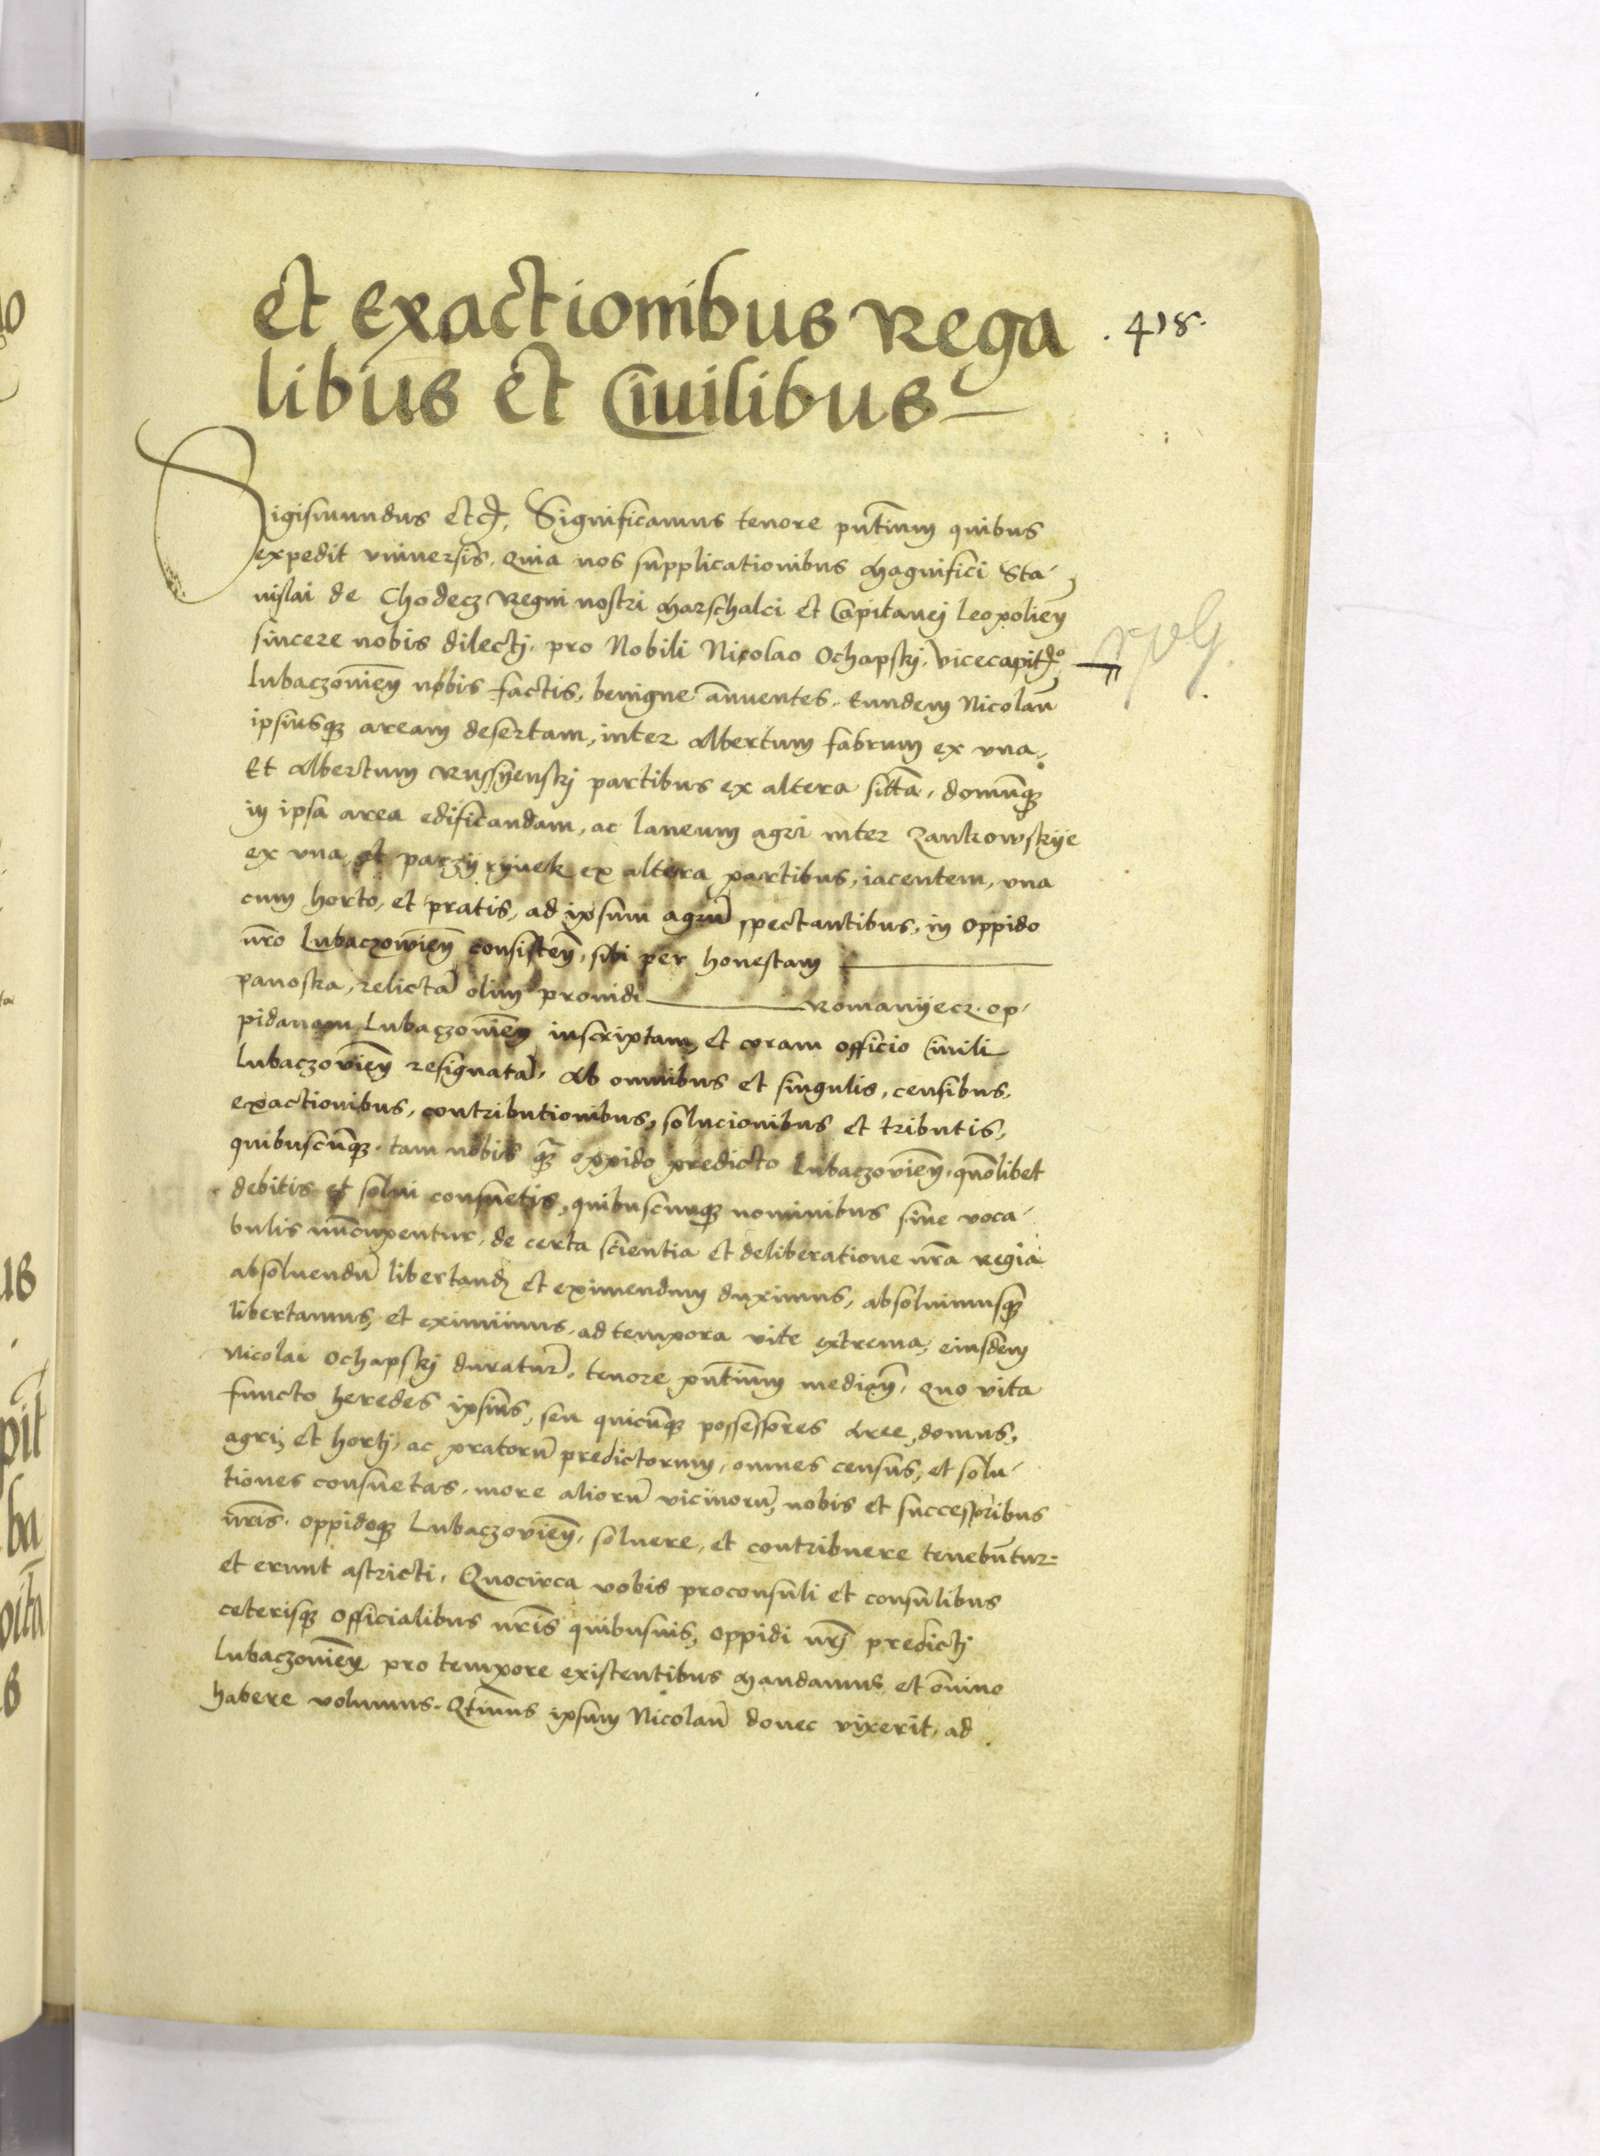 et Exactionibus Rega
.418.
libus et Ciuilibus
Sigismundus etc. Significamus tenore pñtium quibus
expedit vniuersis. Quia nos supplicationibus Magnifici Sta-
nislai de Chodecz Regni nostri Marschalci et Capitanej Leopolieñ
sincere nobis dilectj. pro Nobili Nicolao Ochapskj. vicecapito
lubaczouieñ nobis factis, benigne annuentes. Eundem Nicolaũ
ipsiusq aream desertam, inter Albertum fabrum ex vna.
Et Albertum Russyenskj partibus ex altera sitã, domũq
in ipsa area edificandam, ac laneum agri inter Zankowskye
ex vna et parzy ex altera partibus, iacentem, vna
cum horto, et pratis, ad ipsum agrũ spectantibus, in oppido
nr̃o Lubaczowieñ consisteñ, sibi per honestam
panoska, relictã olim prouidi Romanyecz. op-
pidanam Lubaczouieñ inscriptam, et coram officio ciuili
Lubaczouieñ resignatã. Ab omnibus et singulis, censibus.
exactionibus, contributionibus, solucionibus et tributis,
quibuscũq. tam nobis q̃ oppido predicto Lubaczouieñ. quõlibet
debitis et solui consuetis, quibuscunq nominibus siue voca-
bulis nũcupentur, de certa scientia et deliberatione nr̃a regia
absoluendũ libertand et eximendum duximus, absoluimusq
libertamus, et eximimus, ad tempora vite extrema, eiusdem
Nicolai Ochapskj duraturũ, tenore pñtium mediañ. Quo vita
functo heredes ipsius, seu quicũq possessores Aree, domus,
agri, et hortj, ac pratorũ predictorum, omnes census, et solu-
tiones consuetas. more aliorũ vicinorũ, nobis et successoribus
nr̃is. oppidoq Lubaczouieñ. soluere, et contribuere tenebũtur
et erunt astricti, Quocirca vobis proconsuli et consulibus
ceterisq officialibus nr̃is quibusuis, oppidi nr̃j predictj
Lubaczouieñ pro tempore existentibus Mandamus et om̃ino
habere volumus. Qt̃inus ipsum Nicolaũ donec vixerit, ad